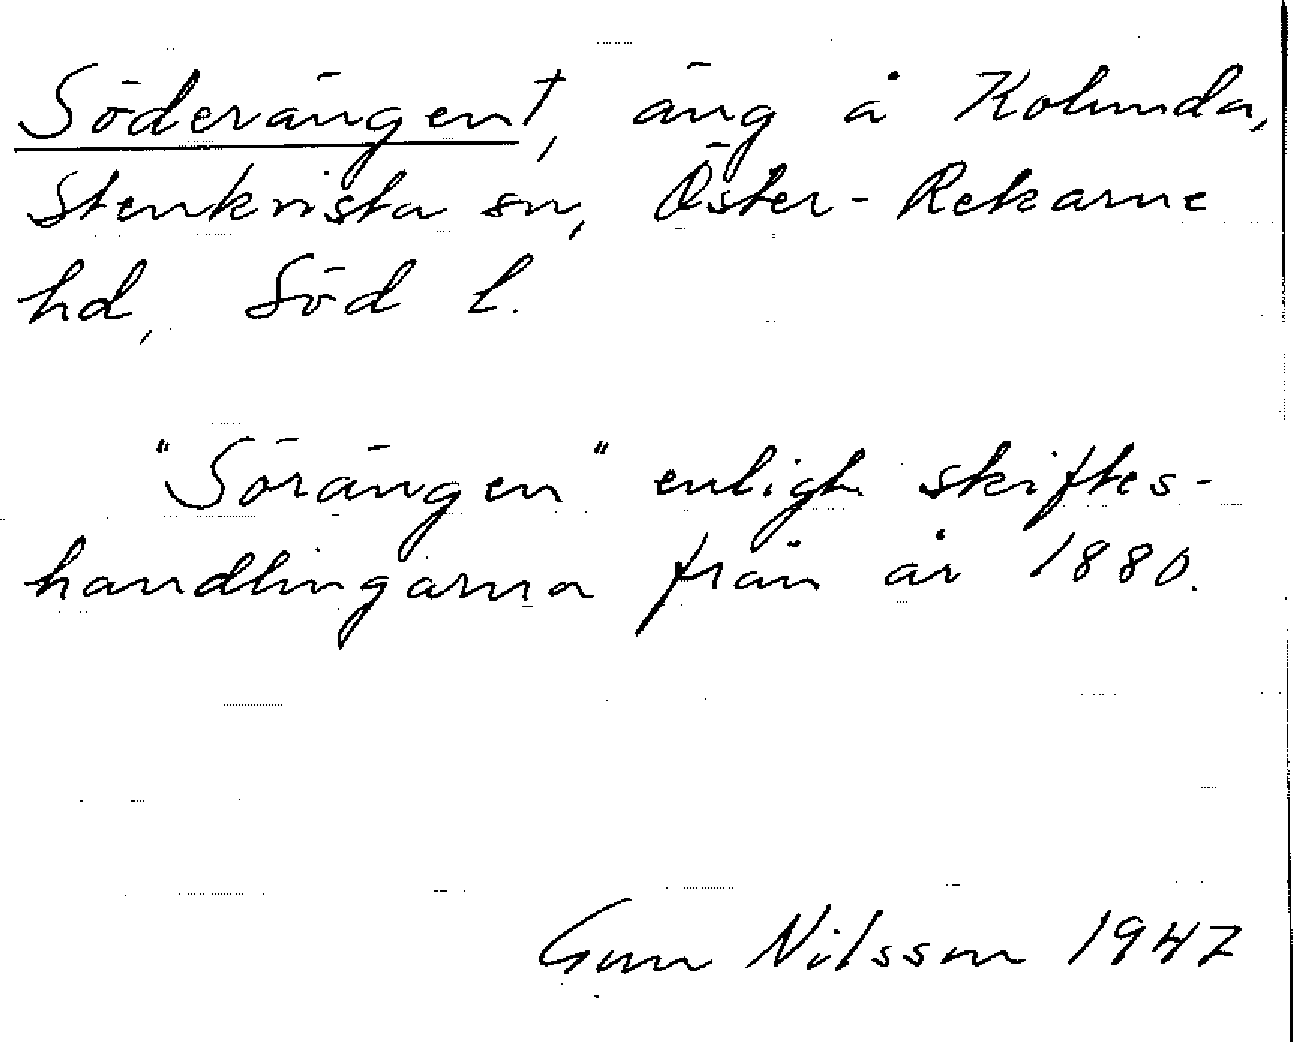 Söderängen†, äng å Kolunda,
Stenkvista sn, Öster-Rekarne
hd, Söd l.
"Sörängen" enligt skiftes-
handlingarna från år 1880.
Gun Nilsson 1947